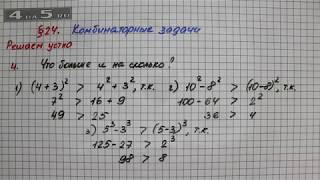 4 на 5.ru
§24. Комбинаторные задачи
Решаем устно
4. Что больше и на сколько?
1) (4+3)² > 4²+3², т.к. 2) 10²-8² > (10-8)², т.к.
7² > 16+9 100-64 > 2²
49 > 25 36 > 4
3) 5³-3³ > (5-3)³, т.к.
125-27 > 2³
98 > 8